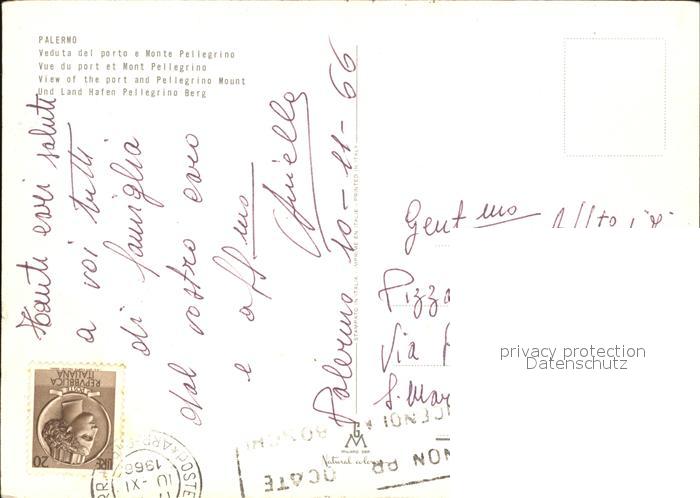 PALERMO
Veduta del porto e Monte Pellegrino
Vue du port et Mont Pellegrino
View of the port and Pellegrino Mount
Und Land Hafen Pellegrino Berg
Tanti cari saluti
a voi tutti
di famiglia
dal vostro caro
e affmo
Palermo 10-11-66
STAMPATO IN ITALIA - IMPRIMÉ EN ITALIE - PRINTED IN ITALY
Gent mo
Pizza
Via
S. Mar
privacy protection
Datenschutz
REPVBBLICA
ITALIANA
POSTE
LIRE 20
1966
XI
NON PR
OCATE
BOSCHI
MILANO
Natural color